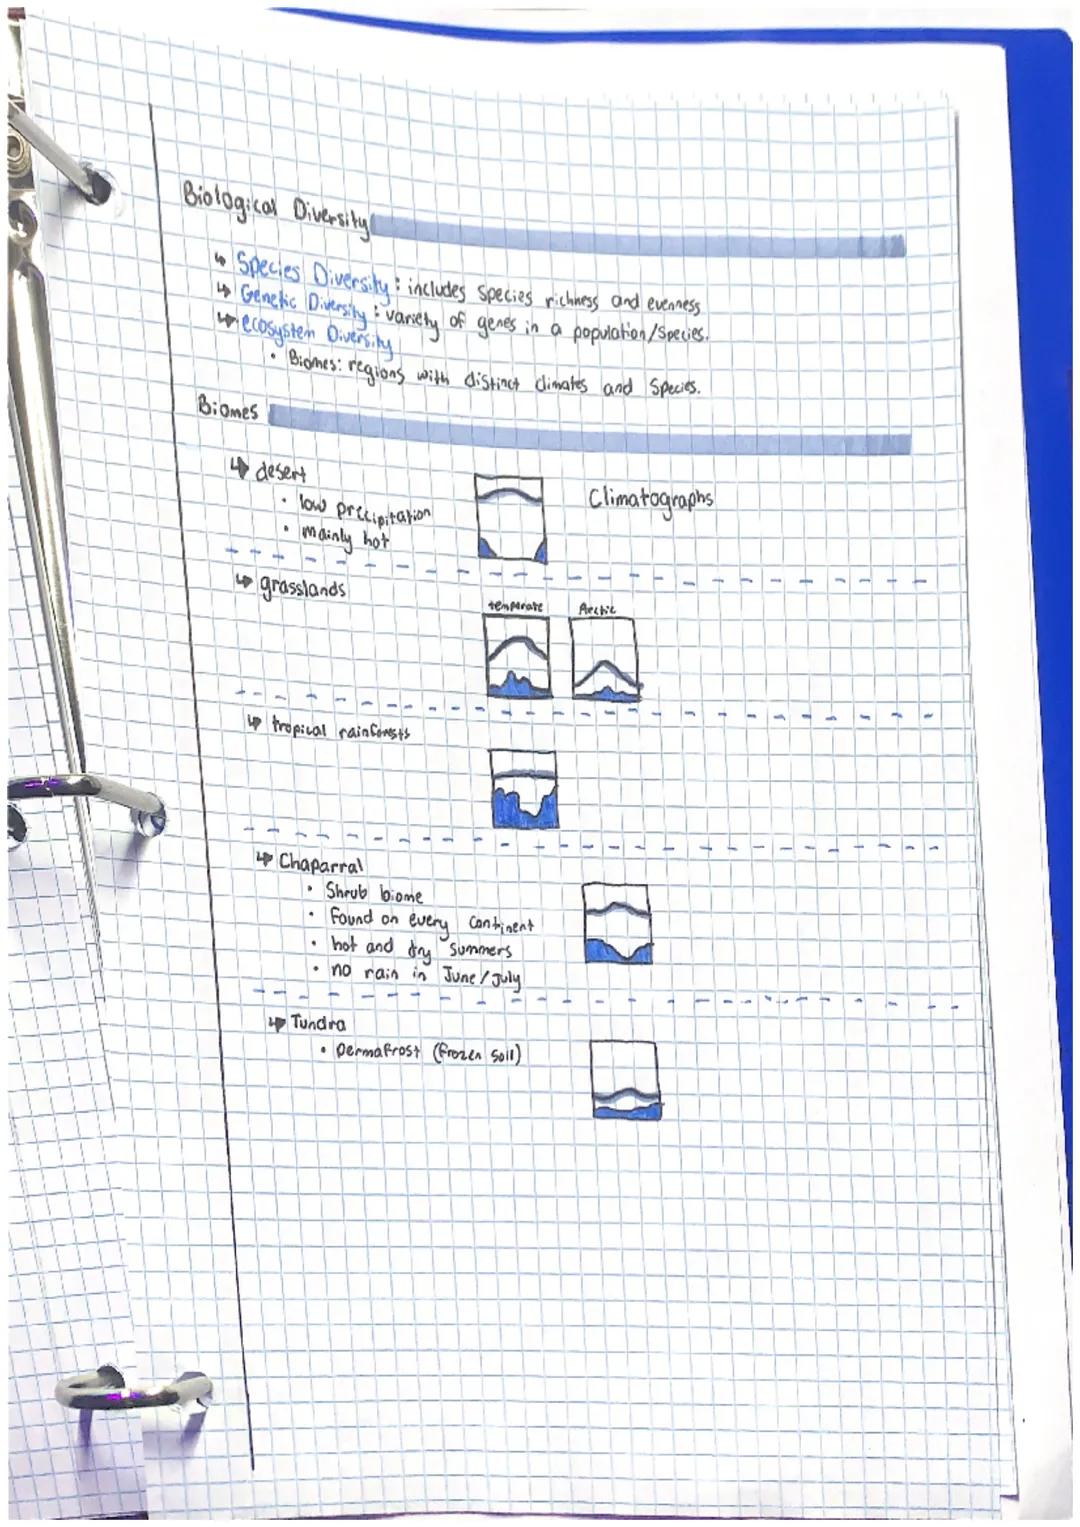 Biological Diversity
↳ Species Diversity: includes species richness and evenness
↳ Genetic Diversity: variety of genes in a population/species.
↳ ecosystem Diversity
• Biomes: regions with distinct climates and species.
Biomes
↳ desert
• low precipitation
• mainly hot
Climatographs
↳ grasslands
temperate Arctic
↳ tropical rainforests
↳ Chaparral
• Shrub biome
• found on every continent
• hot and dry summers
• no rain in June/July
↳ Tundra
• Permafrost (frozen soil)